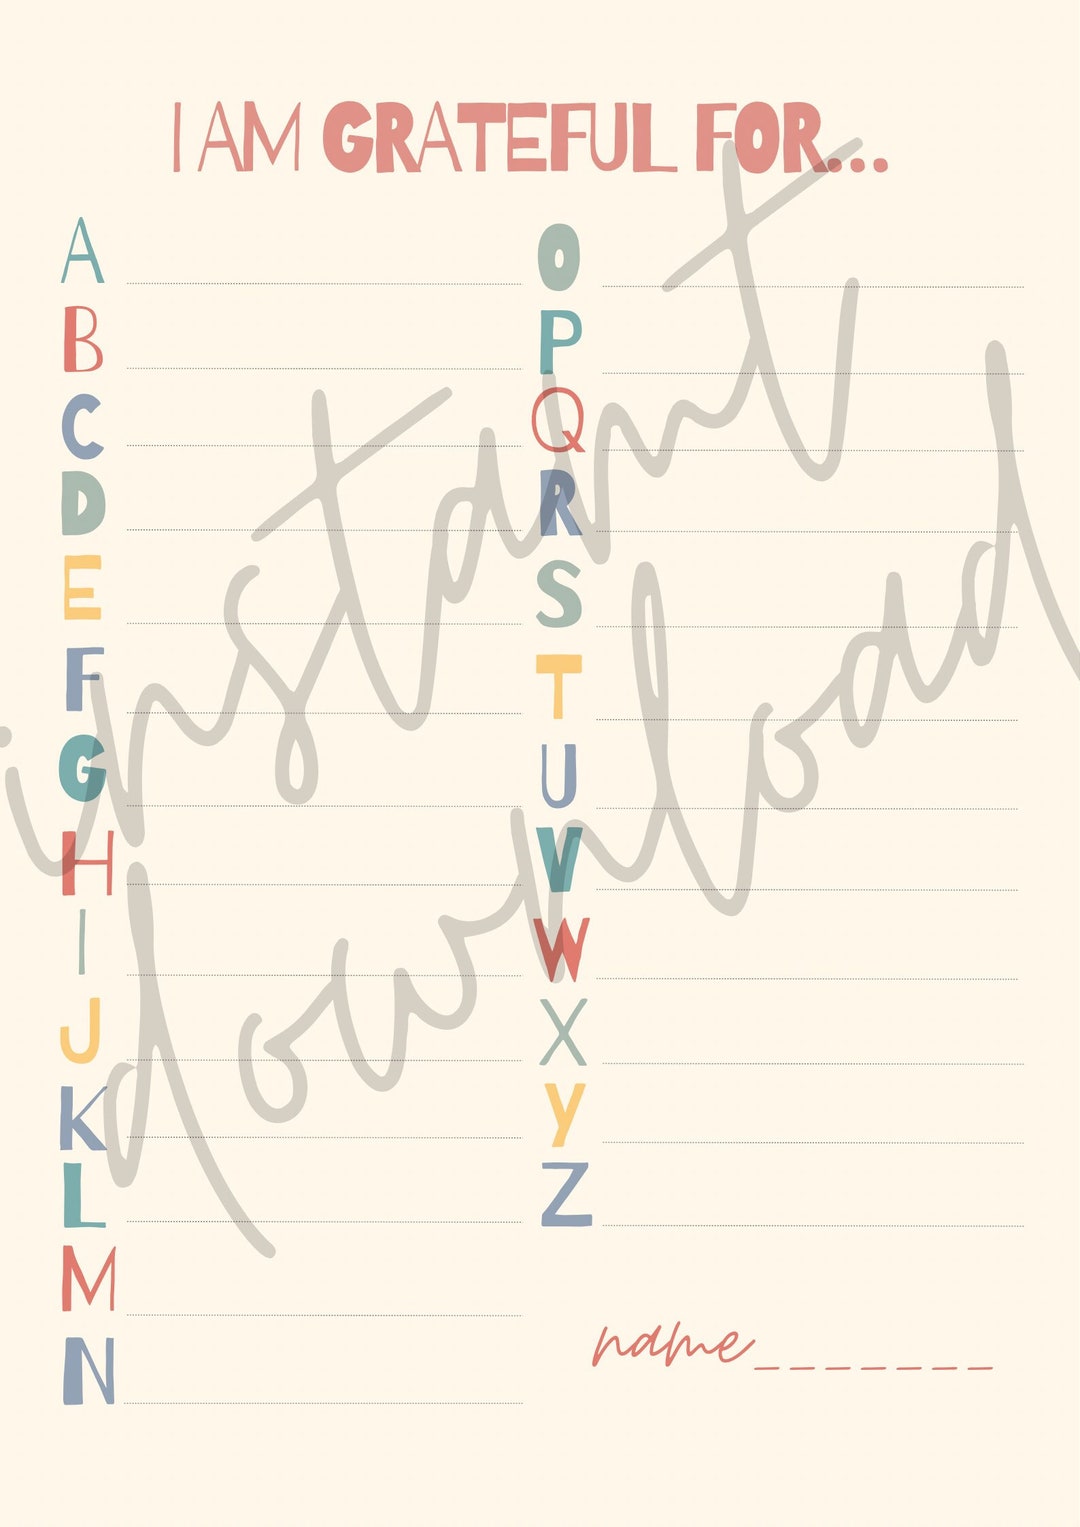 I AM GRATEFUL FOR...
A
B
C
D
E
F
G
H
I
J
K
L
M
N
O
P
Q
R
S
T
U
V
W
X
Y
Z
name_______
instant
download